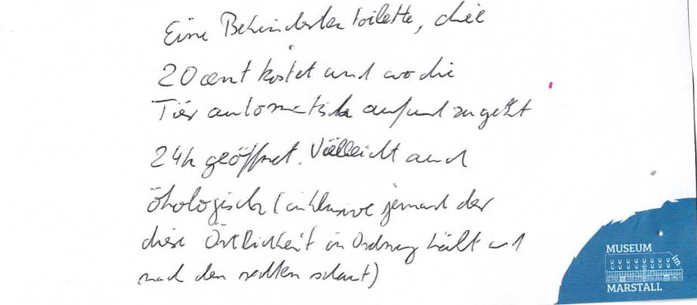 Eine Behindertentoilette, die
20 cent kostet und wo die
Tür automatisch auf und zu geht
24h geöffnet. Vielleicht auch
ökologisch (inklusive jemand der
diese Örtlichkeit in Ordnung hält und
nach den rechten schaut)
MUSEUM
im
MARSTALL